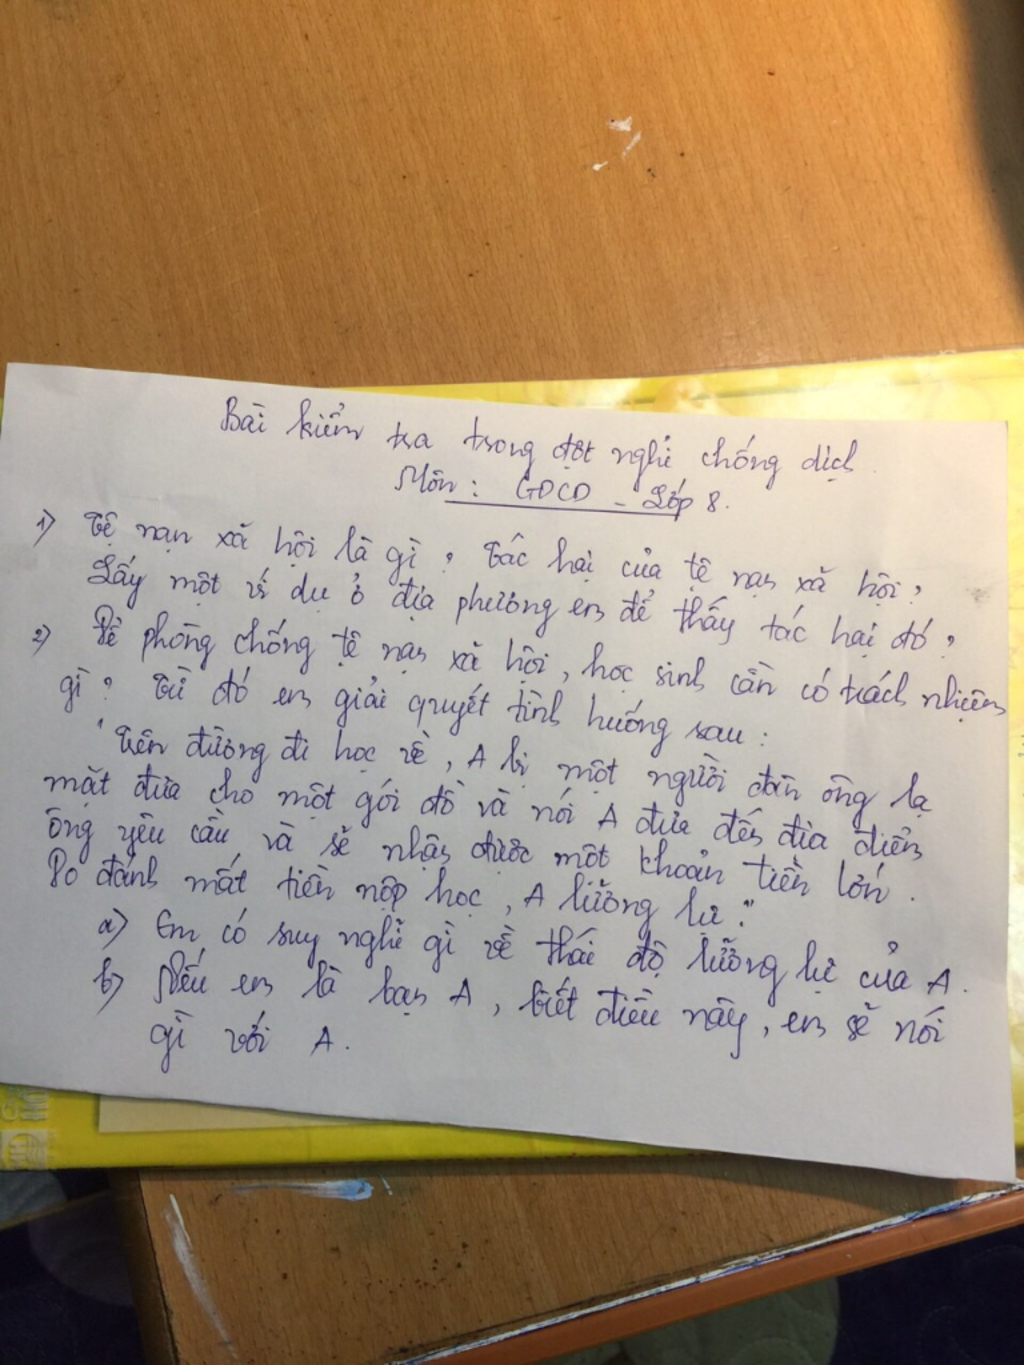 Bài kiểm tra trong đợt nghỉ chống dịch.
Môn: GDCD - Lớp 8.
1) Tệ nạn xã hội là gì? Tác hại của tệ nạn xã hội?
Lấy một ví dụ ở địa phương em để thấy tác hại đó?
2) Để phòng chống tệ nạn xã hội, học sinh cần có trách nhiệm
gì? Từ đó em giải quyết tình huống sau:
"Trên đường đi học về, A bị một người đàn ông lạ
mặt đưa cho một gói đồ và nói A đưa đến địa điểm
ông yêu cầu và sẽ nhận được một khoản tiền lớn.
Do đánh mất tiền nộp học, A lưỡng lự."
a) Em có suy nghĩ gì về thái độ lưỡng lự của A.
b) Nếu em là bạn A, biết điều này, em sẽ nói
gì với A.